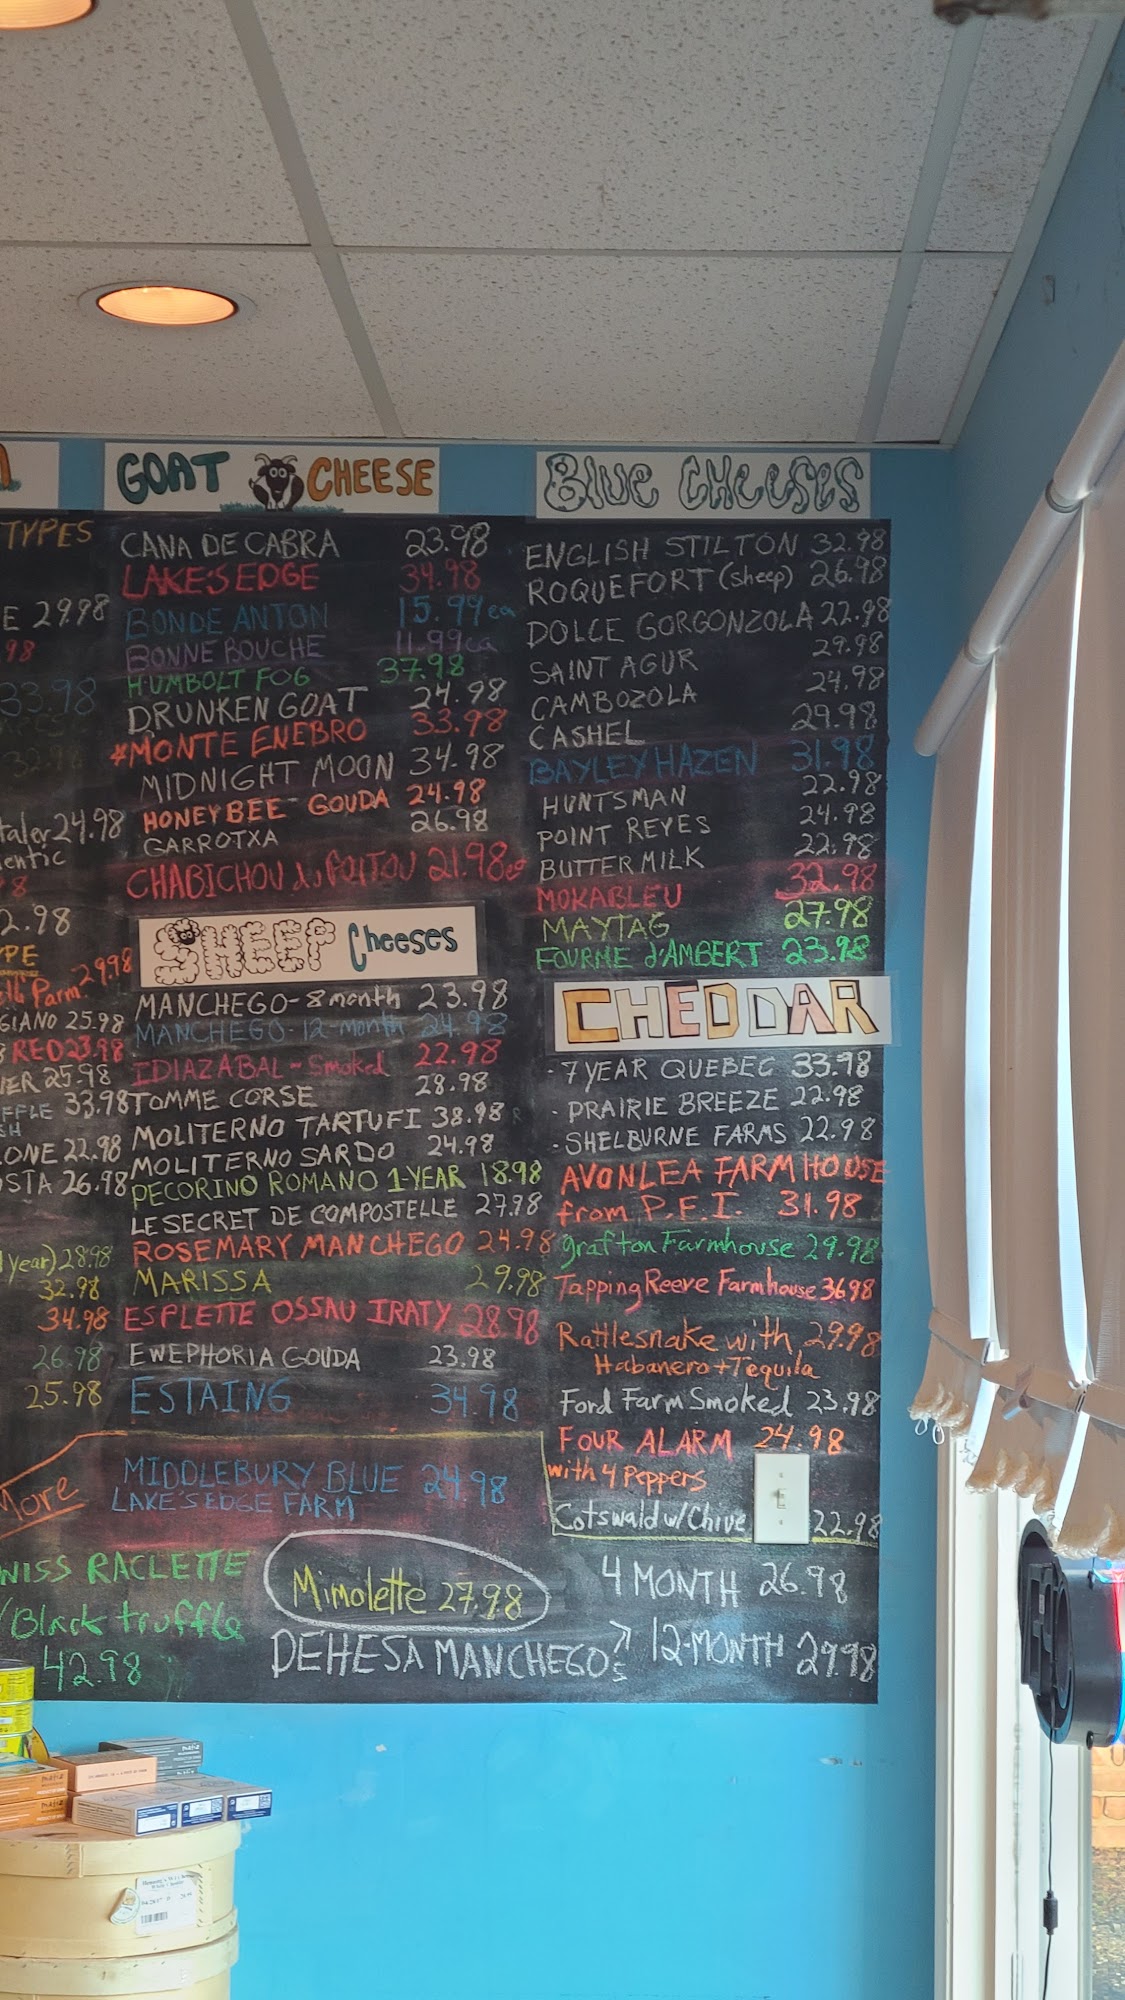 TYPES
E 29.98
.98
33.98
32.98
taler 24.98
entic
2.98
YPE
29.98
Parm
GIANO 25.98
RED 23.98
IER 25.98
FFLE 33.98
SH
LONE 22.98
OSTA 26.98
year) 28.98
32.98
34.98
26.98
25.98
More
WISS RACLETTE
/Black truffle
42.98
GOAT CHEESE
CANA DE CABRA 23.98
LAKE'S EDGE 34.98
BONDE ANTON 15.99 ea
BONNE BOUCHE 11.99 ea
HUMBOLT FOG 37.98
DRUNKEN GOAT 24.98
*MONTE ENEBRO 33.98
MIDNIGHT MOON 34.98
HONEYBEE GOUDA 24.98
GARROTXA 26.98
CHABICHOU du POITOU 21.98 ea
SHEEP Cheeses
MANCHEGO - 8 month 23.98
MANCHEGO - 12 month 24.98
IDIAZABAL - Smoked 22.98
TOMME CORSE 28.98
MOLITERNO TARTUFI 38.98
MOLITERNO SARDO 24.98
PECORINO ROMANO 1-YEAR 18.98
LE SECRET DE COMPOSTELLE 27.98
ROSEMARY MANCHEGO 24.98
MARISSA 29.98
ESPLETTE OSSAU IRATY 28.98
EWEPHORIA GOUDA 23.98
ESTAING 34.98
MIDDLEBURY BLUE 24.98
LAKE'S EDGE FARM
Mimolette 27.98
DEHESA MANCHEGO
4 MONTH 26.98
12-MONTH 29.98
BLUE CHEESES
ENGLISH STILTON 32.98
ROQUEFORT (sheep) 26.98
DOLCE GORGONZOLA 22.98
SAINT AGUR 29.98
CAMBOZOLA 24.98
CASHEL 29.98
BAYLEY HAZEN 31.98
HUNTSMAN 22.98
POINT REYES 24.98
BUTTERMILK 22.98
MOKABLEU 32.98
MAYTAG 27.98
FOURME d'AMBERT 23.98
CHEDDAR
- 7 YEAR QUEBEC 33.98
- PRAIRIE BREEZE 22.98
- SHELBURNE FARMS 22.98
AVONLEA FARMHOUSE
from P.E.I. 31.98
grafton Farmhouse 29.98
Tapping Reeve Farmhouse 36.98
Rattlesnake with 29.98
Habanero + Tequila
Ford Farm Smoked 23.98
FOUR ALARM 24.98
with 4 Peppers
Cotswald w/ Chive 22.98